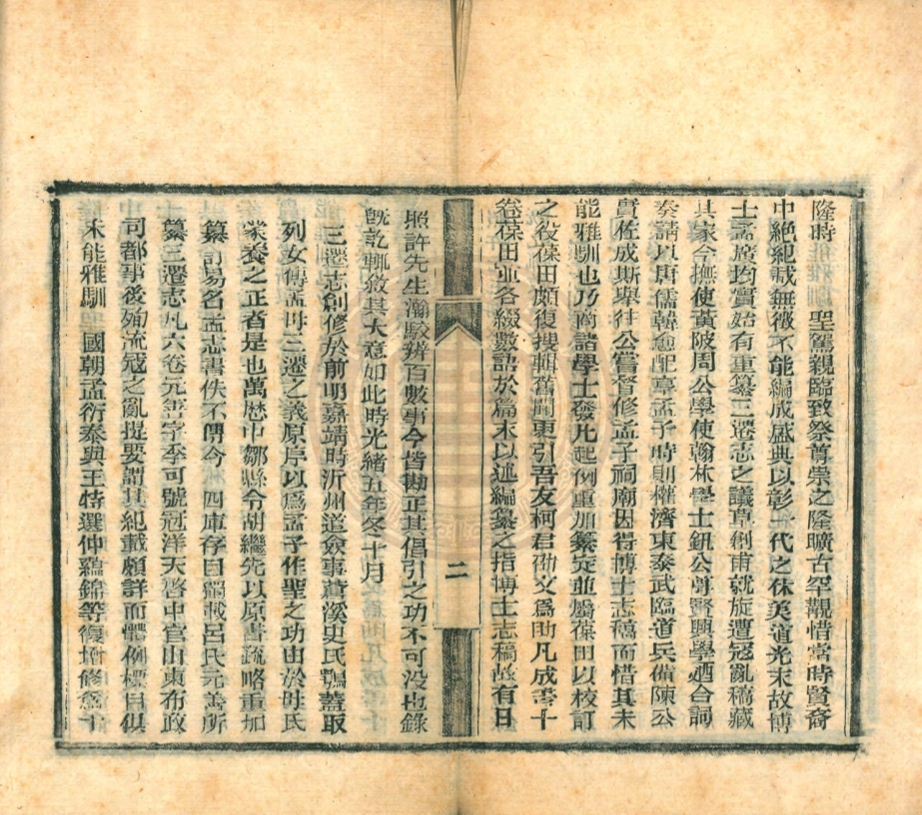 隆時 聖駕親臨致祭尊崇之隆曠古罕觀惜當時賢裔
中絕紀載無徵不能編成盛典以彰一代之休美道光末故博
士孟廣均實始有重纂三遷志之議草創甫就旋遭冦亂稿藏
其家今撫使黃陂周公學使翰林學士鈕公尊賢興學迺合詞
奏請以唐儒韓愈配享孟子時則權濟東泰武臨道兵備陳公
實佐成斯舉往公嘗督修孟子祠廟因得博士志稿而惜其未
能雅馴也乃商諸學士發凡起例重加纂定並屬葆田以校訂
之役葆田頗復搜輯舊聞更引吾友柯君劭文爲助凡成書十
卷葆田並各綴數語於篇末以述編纂之指博士志稿舊有日
二
照許先生瀚駮辨百數事今皆勘正其倡引之功不可没也錄
旣訖輒敘其大意如此時光緒五年冬十月
三遷志創修於前明嘉靖時沂州道僉事蒼溪史氏鶚蓋取
列女傳孟母三遷之義原序以爲孟子作聖之功由於母氏
蒙養之正者是也萬厯中鄒縣令胡繼先以原書疏略重加
纂訂易名孟志書佚不傳今 四庫存目編載呂氏元善所
纂三遷志凡六卷元善字季可號冠洋天啓中官山東布政
司都事後殉流冦之亂提要謂其紀載頗詳而體例標目俱
未能雅馴 國朝孟衍泰與王特選仲蘊錦等復增修爲十